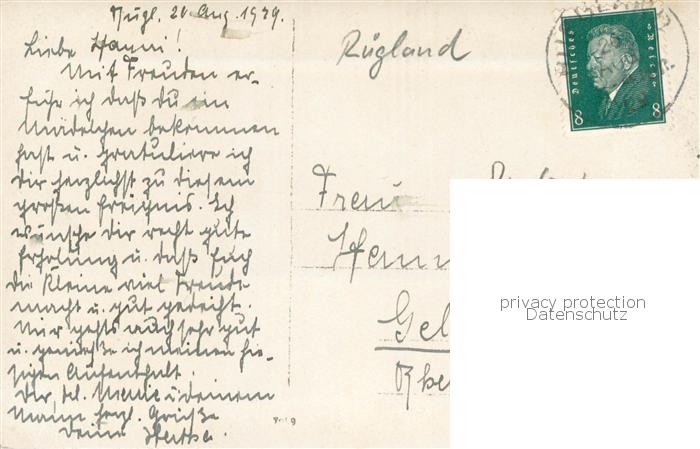 Rügl. 21 Aug. 1929.
Liebe Hanni!
Mit Freuden er-
fuhr ich daß du ein
Mädelchen bekommen
hast u. gratuliere ich
dir herzlichst zu diesem
großen Ereignis. Ich
wünsche dir recht gute
Erholung u. daß Euch
die Kleine viel Freude
macht u. gut gedeiht.
Mir gehts auch sehr gut
u. genieße ich meinen hie-
sigen Aufenthalt.
Dir, u. deinem
Mann herzl. Grüße
Deine
Rügland
Deutsches Reich
8 8
Frau
Hann
Gel
Rhe
privacy protection
Datenschutz